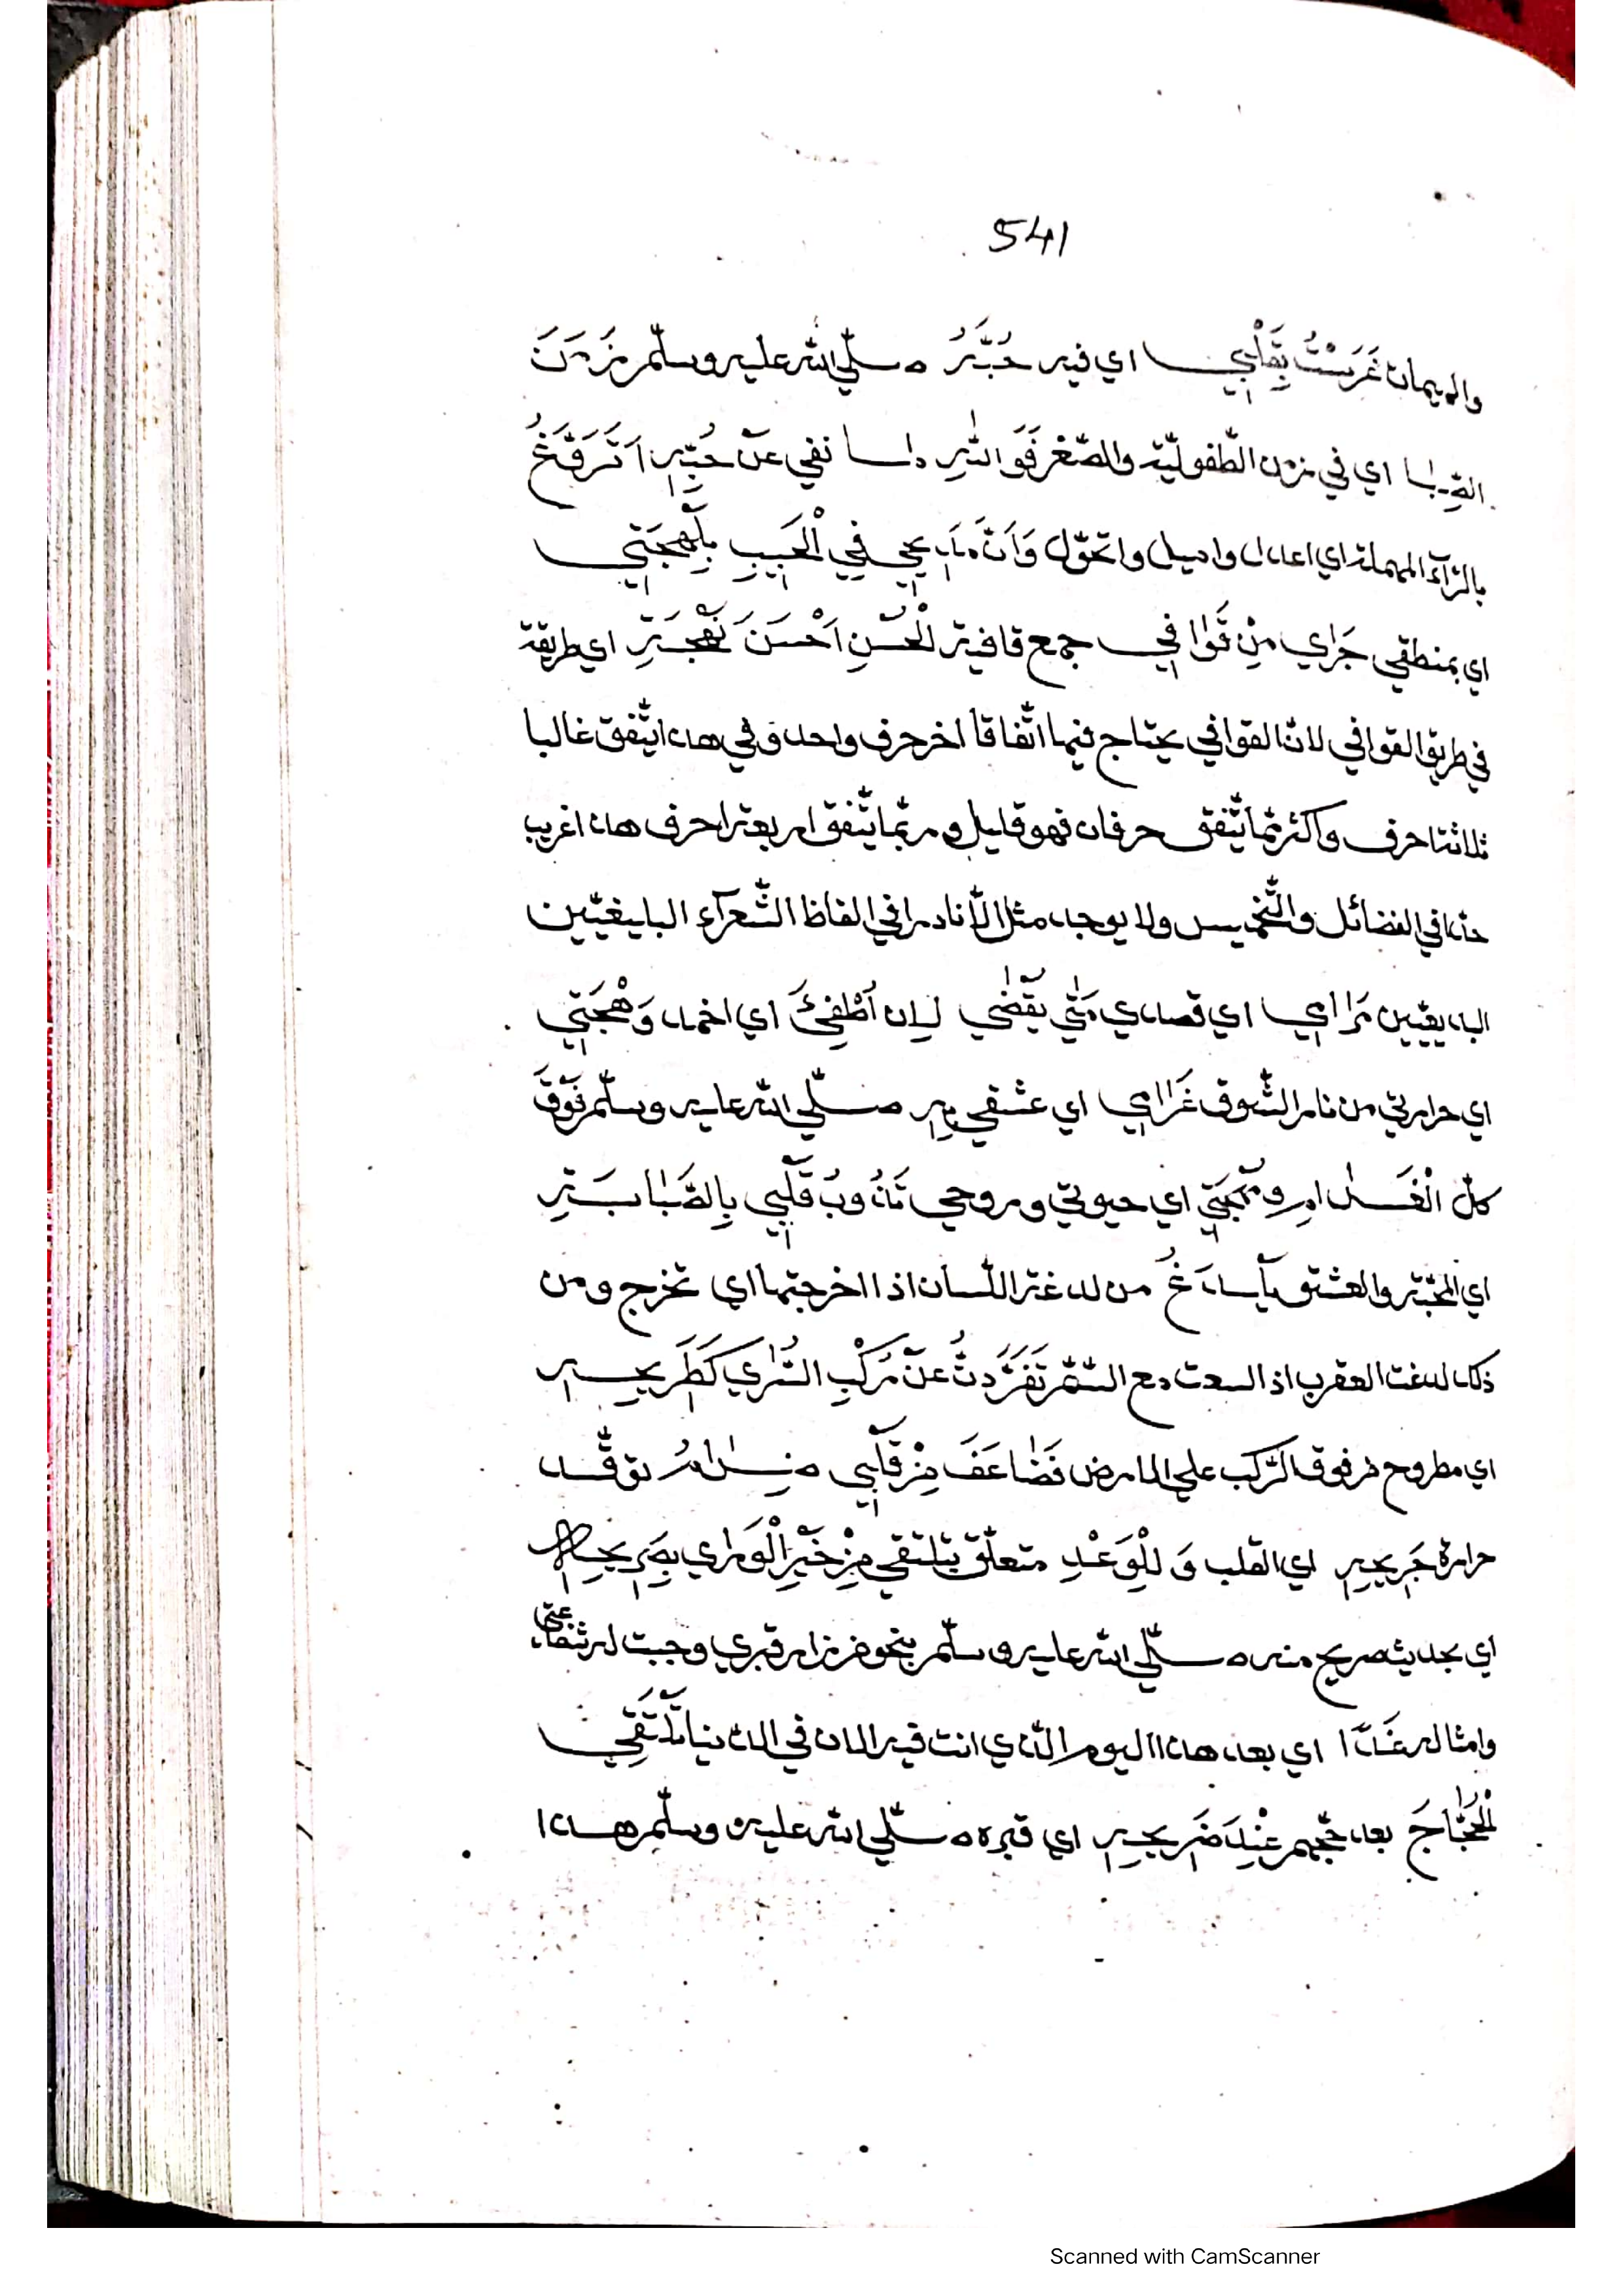 541
والايمان غَرَسْتُ بِقَلْبِي اي فيه حُبَّهُ صلّي الله عليه وسلّم زَمَنَ
الصِّبا اي في زمن الطّفوليّة والصّغر فَوَاللهِ ما نفي عن حُبِّهِ اَتَرَوَّغُ
بالرّآء المهملة اي اعدل واميل واتحوّل وَاَنَّ مَدِيحِي فِي الْحَبِيبِ بِلَهْجَتِي
اي بمنطقي جَرٰي مِنْ قَوٰافِي جمع قافية الْحُسْنِ اَحْسَنَ نَهْجَةٍ اي طريقة
في طريق القوافي لانّ القوافي يحتاج فيها اتّفاقا اخر حرف واحد وفي هذا يتّفق غالبا
ثلاثة احرف واكثر ممّا يتّفق حرفان فهو قليل وربّما يتّفق اربعة احرف هذا غريب
جدّا في الفضائل والتّخميس ولا يوجد مثل الّا نادرا في الفاظ الشّعرآء البليغيّين
البديعيّين مَرٰامِي اي قصدي مَتٰي يُقْضٰي لِان اُطْفِئَ اي اخمد وَهْجَتِي
اي حرارتي من نار الشّوق غَرٰامِي اي عشقي بِهِ صلّي الله عليه وسلّم فَوْقَ
كلّ الْغَرٰامِ وَمُهْجَتِي اي حيوتي وروحي تَذُوبُ قَلْبِي بِالصَّبٰابَةِ
اي المحبّة والعشق يُلْدَغُ من لدغة اللّسان اذا اخرجتها اي تخرج ومن
ذلك لدغت العقرب اذا لسعت مع السّمّ تَفَرَّدتُ عَنْ رَكْبِ السُّرٰي كَطَرِيحِهِ
اي مطروح من فوق الرّكب علي الارض فَضٰاعَفَ مِنْ قَلْبِي ضِرٰامُ توقّد
حرارة جَرِيحِهِ اي القلب وَلِلْوَعْدِ متعلّق بتلتقي مِنْ خَيْرِ الْوَرٰي بِصَرِيحِهِ
اي بحديث صريح منه صلّي الله عليه وسلّم بنحو من زار قبري وجبت له شفاعتي
وامثاله غَدًا اي بعد هذا اليوم الّذي انت فيه الان في الدّنيا تَلْتَقِي
الْحُجّٰاجَ بعد حجّهم عِنْدَ ضَرِيحِهِ اي قبره صلّي الله عليه وسلّم هذا
Scanned with CamScanner